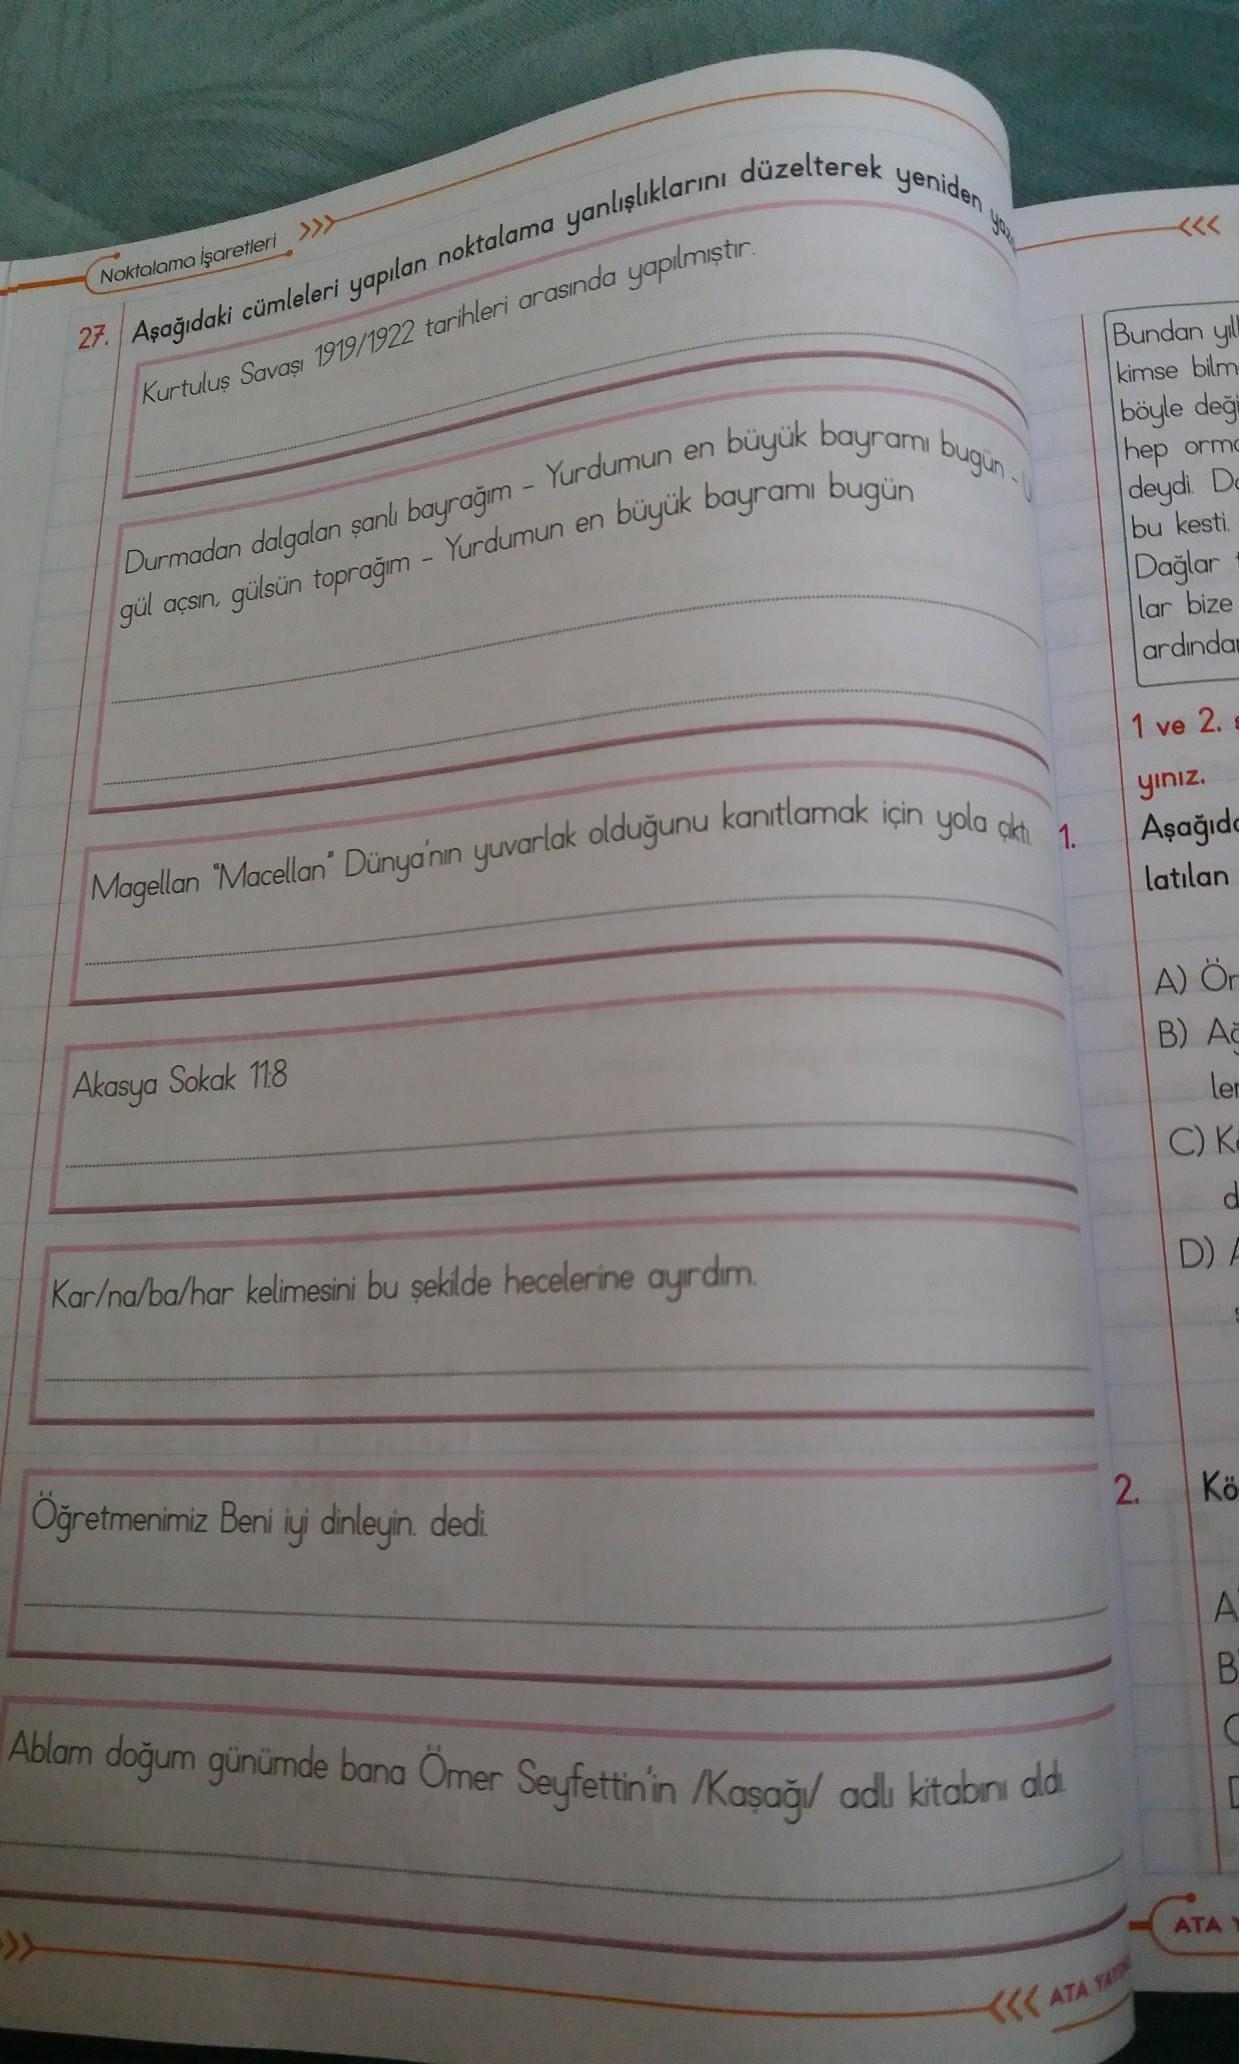 Noktalama İşaretleri
27. Aşağıdaki cümleleri yapılan noktalama yanlışlıklarını düzelterek yeniden
Kurtuluş Savaşı 1919/1922 tarihleri arasında yapılmıştır.
Durmadan dalgalan şanlı bayrağım - Yurdumun en büyük bayramı bugün -
gül açsın, gülsün toprağım - Yurdumun en büyük bayramı bugün
Magellan "Macellan" Dünya'nın yuvarlak olduğunu kanıtlamak için yola çıktı.
Akasya Sokak 11:8
Kar/na/ba/har kelimesini bu şekilde hecelerine ayırdım.
Öğretmenimiz Beni iyi dinleyin. dedi.
Ablam doğum günümde bana Ömer Seyfettin'in /Kaşağı/ adlı kitabını aldı.
ATA
Bundan
kimse
böyle
hep
deydi.
bu kesti.
Dağlar
lar bize
1 ve 2.
yınız.
1.
latılan
A)
B)
C)
D)
2.
A
B
ATA